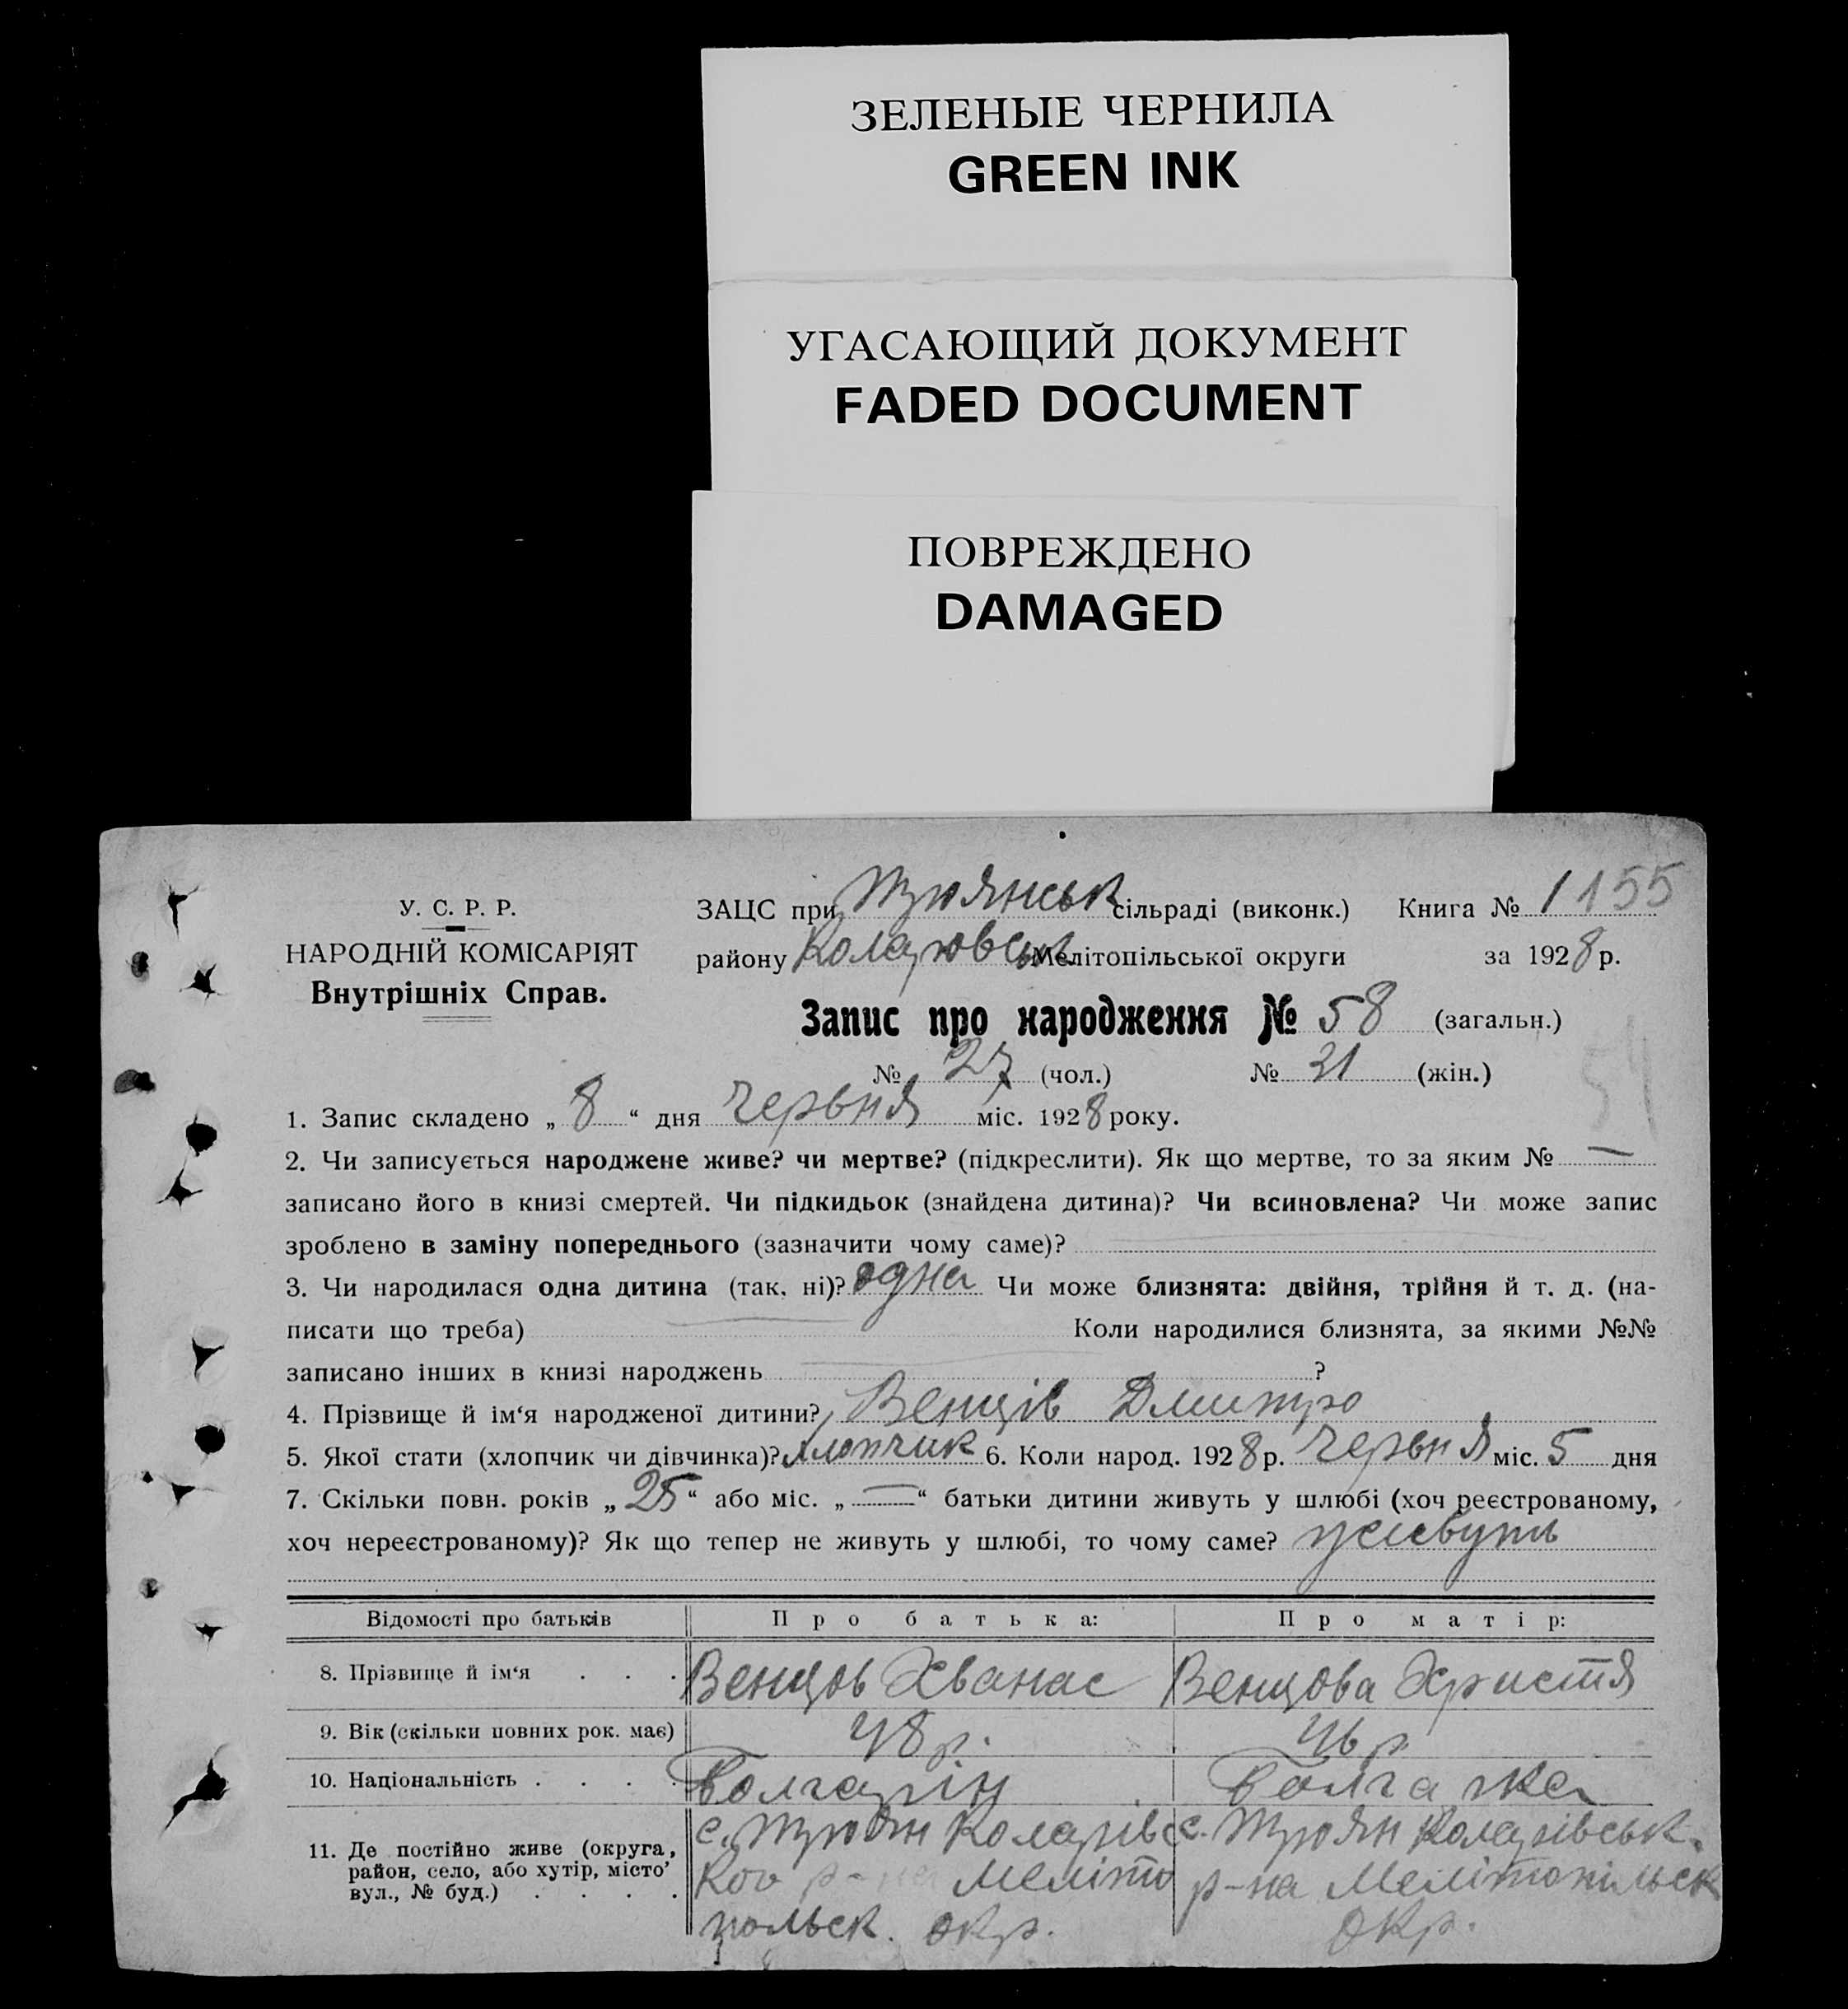 ЗЕЛЕНЫЕ ЧЕРНИЛА
GREEN INK
УГАСАЮЩИЙ ДОКУМЕНТ
FADED DOCUMENT
ПОВРЕЖДЕНО
DAMAGED
У. С. Р. Р.
НАРОДНІЙ КОМІСАРІЯТ
Внутрішніх Справ.
ЗАЦС при Трояньськ сільраді (виконк.) Книга № 1155
району Коларовськ Мелітопільської округи за 1928 р.
Запис про народження № 58 (загальн.)
№ 27 (чол.) № 31 (жін.)
54
1. Запис складено „ 8 “ дня Червня міс. 1928 року.
2. Чи записується народжене живе? чи мертве? (підкреслити). Як що мертве, то за яким № —
записано його в книзі смертей. Чи підкидьок (знайдена дитина)? Чи всиновлена? Чи може запис
зроблено в заміну попереднього (зазначити чому саме)?
3. Чи народилася одна дитина (так, ні)? одна Чи може близнята: двійня, трійня й т. д. (на-
писати що треба) Коли народилися близнята, за якими №№
записано інших в книзі народжень ?
4. Прізвище й ім‘я народженої дитини? Венців Дмитро
5. Якої стати (хлопчик чи дівчинка)? хлопчик 6. Коли народ. 1928 р. Червня міс. 5 дня
7. Скільки повн. років „ 25 “ або міс. „ — “ батьки дитини живуть у шлюбі (хоч реєстрованому,
хоч нереєстрованому)? Як що тепер не живуть у шлюбі, то чому саме? живуть
Відомості про батьків Про батька: Про матір:
8. Прізвище й ім‘я . . . Венцов Хванас Венцова Христя
9. Вік (скільки повних рок. має) 48 р. 46 р.
10. Національність . . . . Болгарін Болгарка
11. Де постійно живе (округа, район, село, або хутір, місто’ вул., № буд.) . . . .
с. Троян Коларівс
кого р-на Меліто
польск. окр.
с. Троян Коларівськ.
р-на Мелітопільськ
окр.